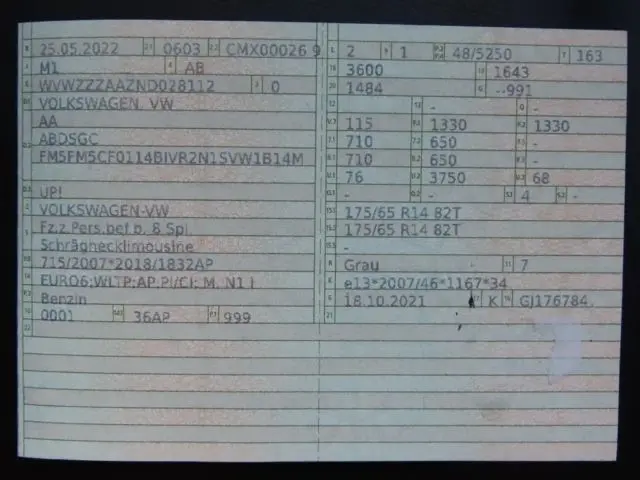 25.05.2022 0603 CMX00026 9
M1 AB
WVWZZZAAZND028112 0
VOLKSWAGEN, VW
AA
ABDSGC
FM5FM5CF0114BIVR2N1SVW1B14M
UP!
VOLKSWAGEN-VW
Fz.z.Pers.bef.b. 8 Spl.
Schräghecklimousine
715/2007*2018/1832AP
EURO6;WLTP;AP,PI/CI; M, N1 I
Benzin
0001 36AP 999
L 2 9 1 48/5250 T 163
18 3600 19 1643
20 1484 G --991
12 - Q -
115 1330 1330
710 650 -
710 650 -
U.1 76 U.2 3750 U.3 68
O.1 - O.2 - S.1 4 S.2 -
175/65 R14 82T
175/65 R14 82T
-
R Grau 11 7
K e13*2007/46*1167*34
6 18.10.2021 17 K 16 GJ176784
21